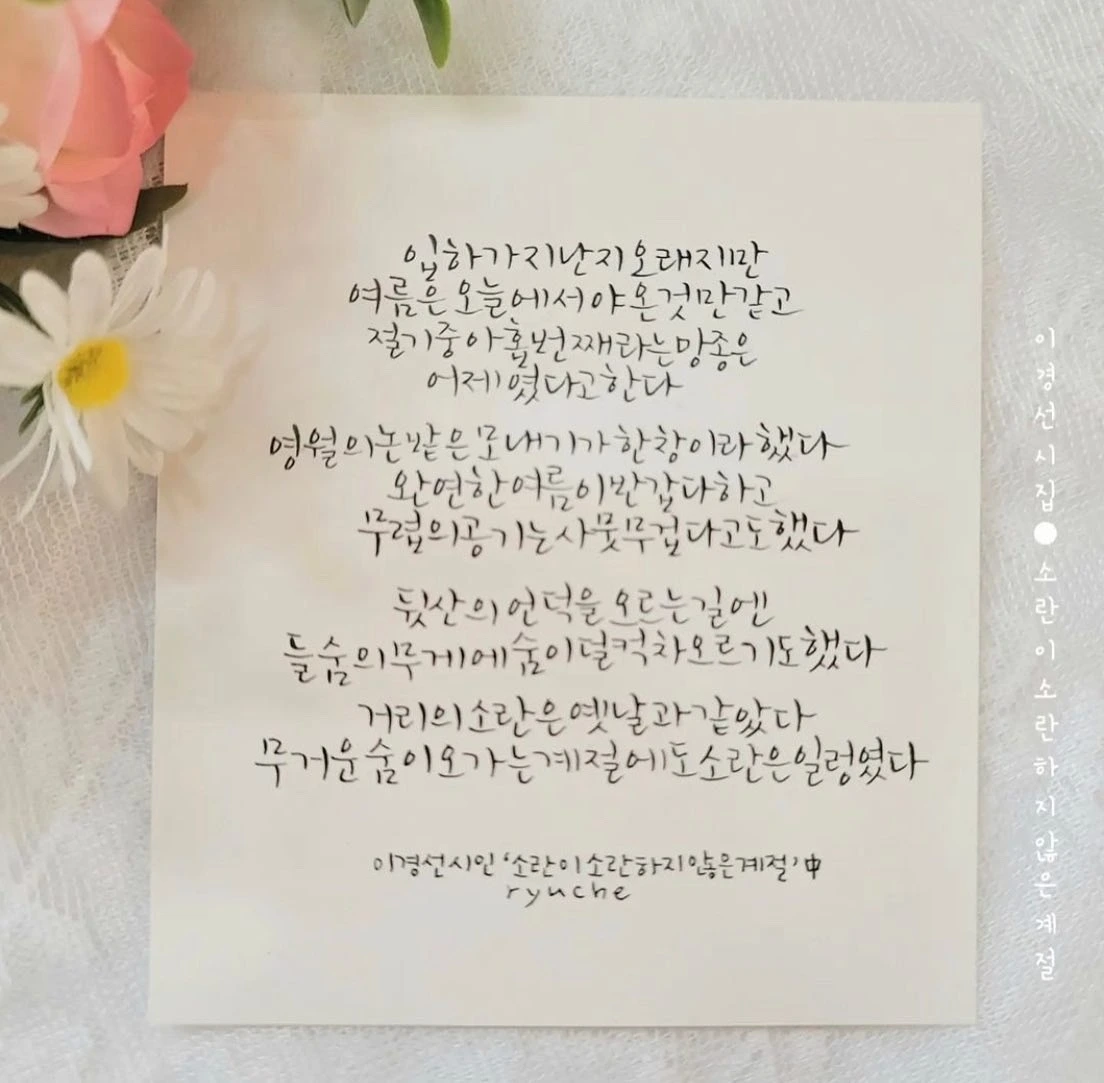 입하가 지난지 오래지만
여름은 오늘에서야 온것만 같고
절기중 아홉번째라는 망종은
어제였다고 한다
영월의 논밭은 모내기가 한창이라 했다
완연한 여름이 반갑다하고
무렵의 공기는 사뭇 무겁다고도 했다
뒷산의 언덕을 오르는 길엔
들숨의 무게에 숨이 덜컥 차오르기도 했다
거리의 소란은 옛날과 같았다
무거운 숨이 오가는 계절에도 소란은 일렁였다
이경선 시인 '소란이 소란하지 않은 계절' 中
ryuche
이경선 시집●소란이 소란하지 않은 계절